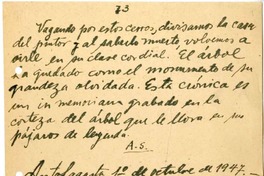 73
Vagando por estos cerros, divisamos la casa
del pintor y al saberlo muerto, volvemos a
oirle en su clase cordial. El árbol
ha quedado como el monumento de su
grandeza olvidada. Esta crónica es
un in memoriam grabado en la
corteza del árbol que le llora en sus
pájaros de leyenda.
A.S.
Antofagasta 1º de octubre de 1947.